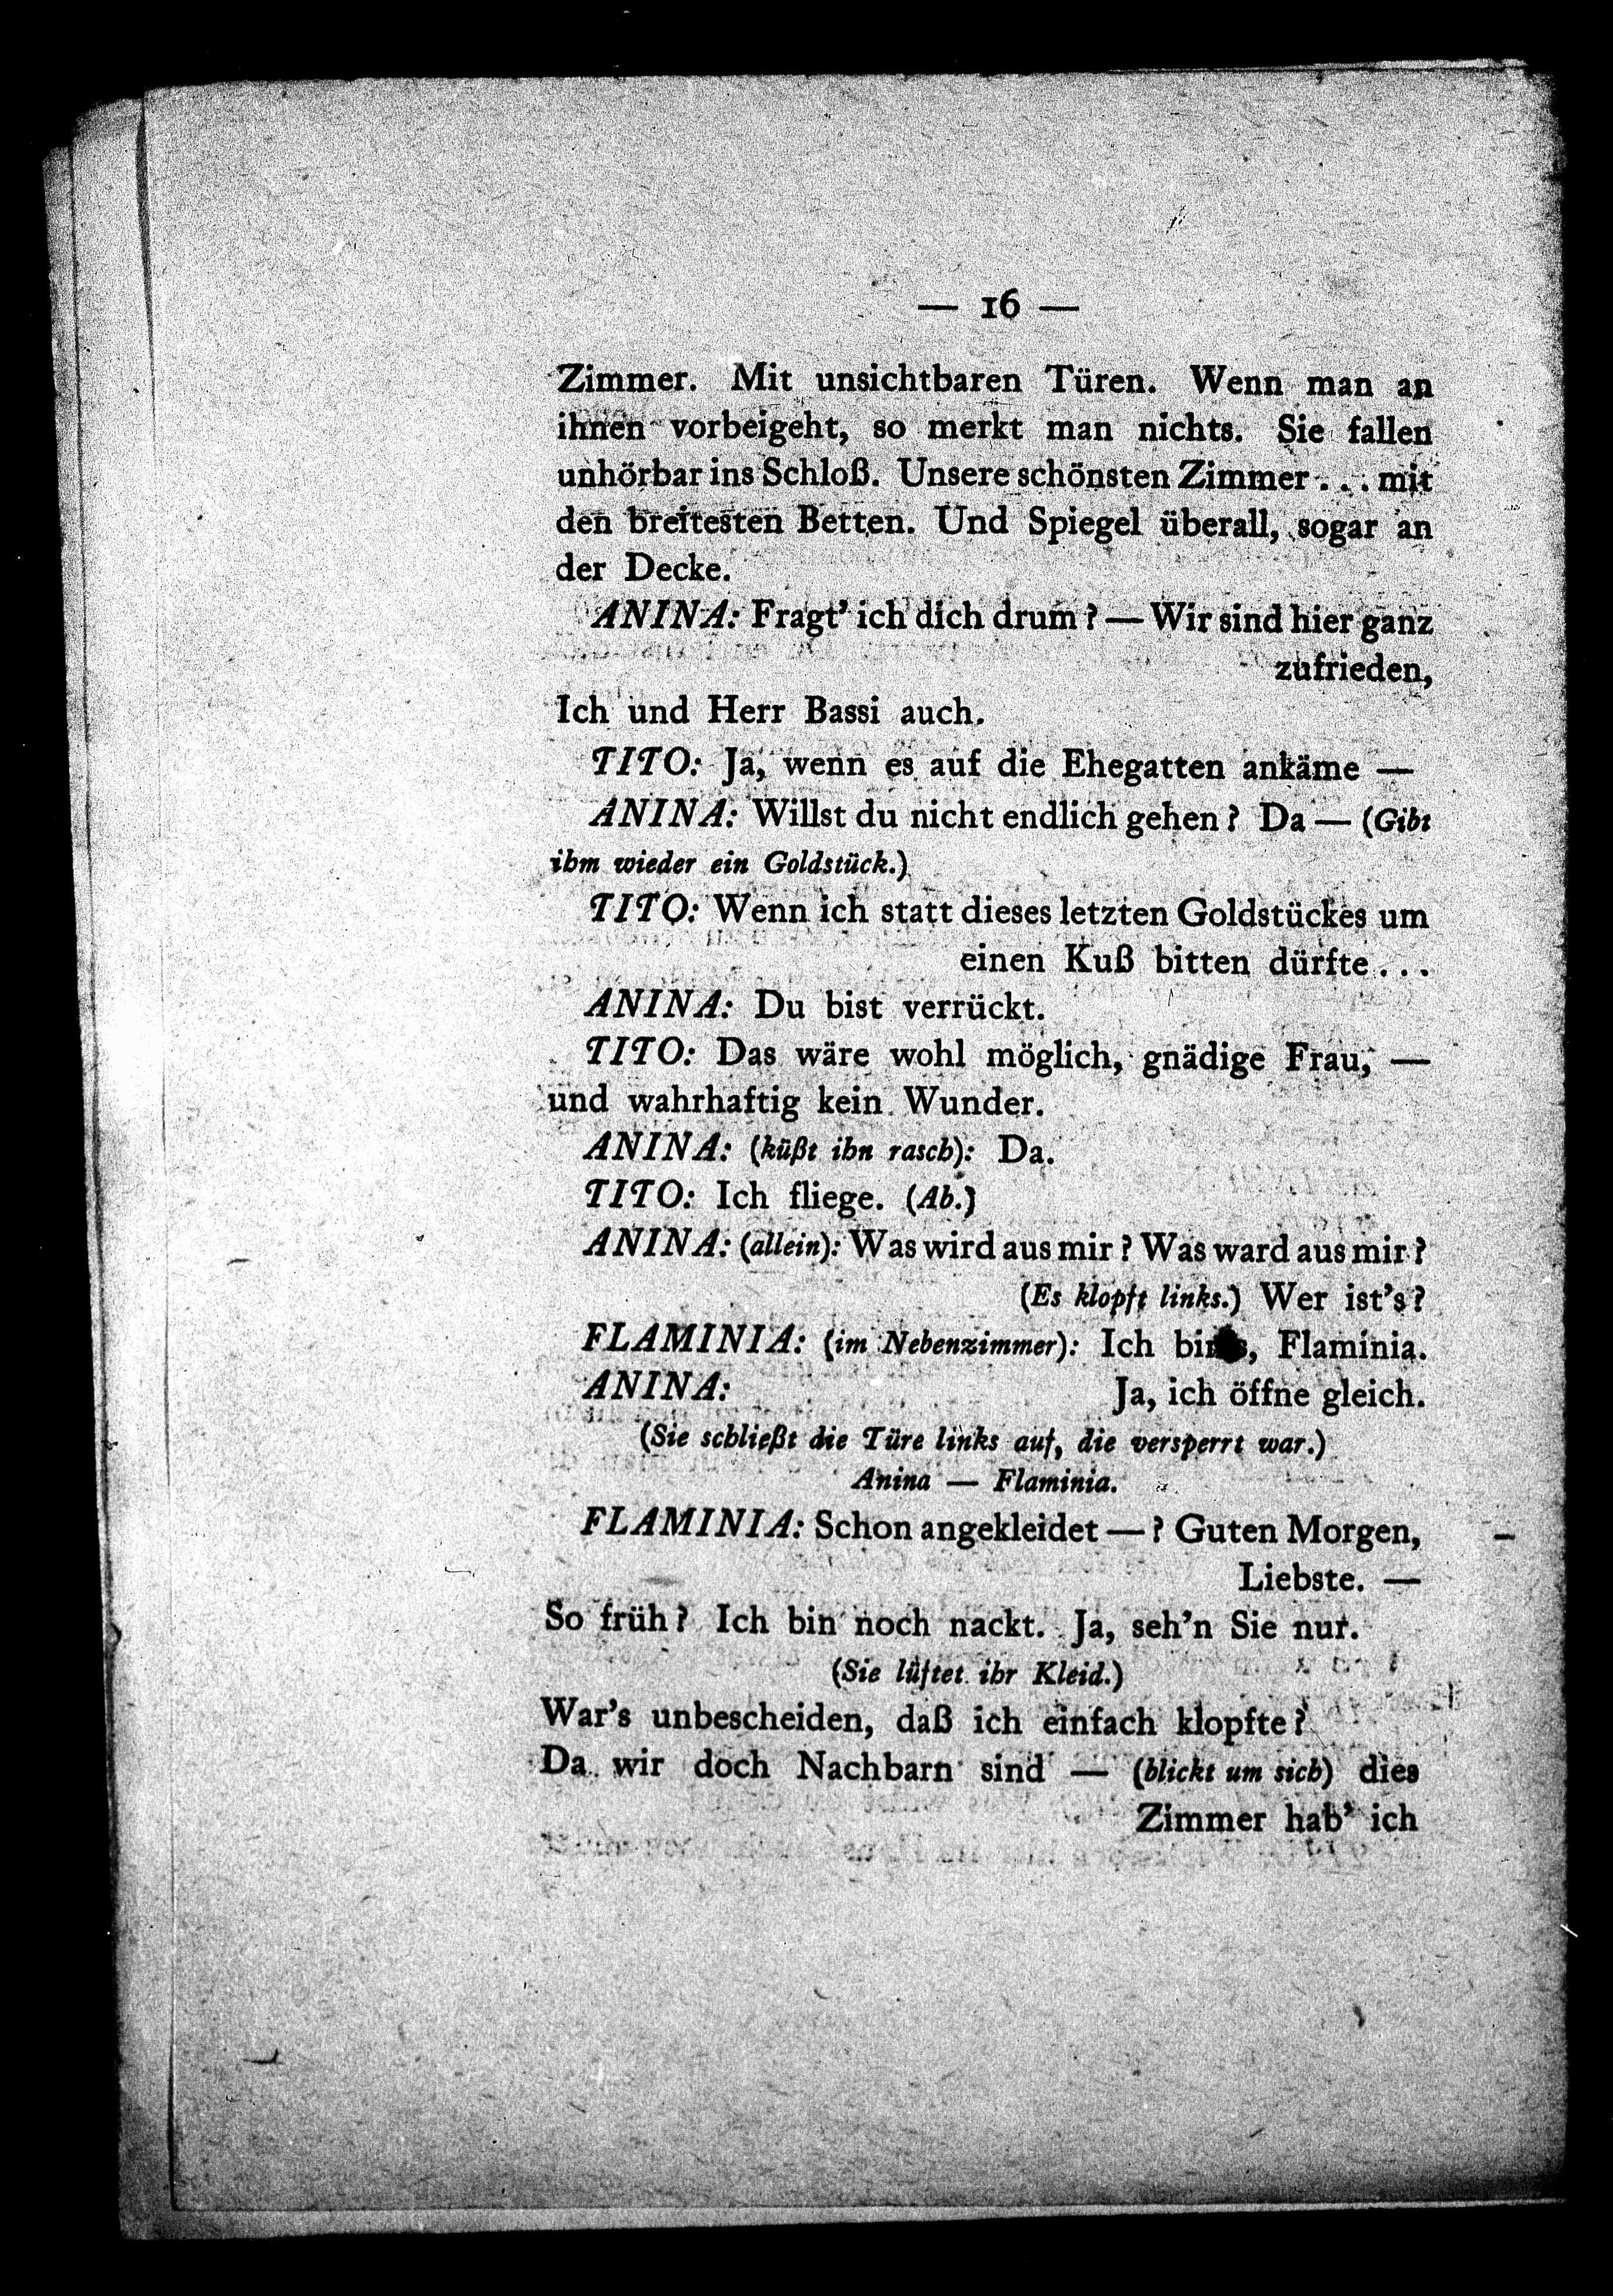 — 16 —
Zimmer. Mit unsichtbaren Türen. Wenn man an
ihnen vorbeigeht, so merkt man nichts. Sie fallen
unhörbar ins Schloß. Unsere schönsten Zimmer . . . mit
den breitesten Betten. Und Spiegel überall, sogar an
der Decke.
ANINA: Fragt’ ich dich drum? — Wir sind hier ganz
zufrieden,
Ich und Herr Bassi auch.
TITO: Ja, wenn es auf die Ehegatten ankäme —
ANINA: Willst du nicht endlich gehen? Da — (Gibt
ihm wieder ein Goldstück.)
TITO: Wenn ich statt dieses letzten Goldstückes um
einen Kuß bitten dürfte . . .
ANINA: Du bist verrückt.
TITO: Das wäre wohl möglich, gnädige Frau, —
und wahrhaftig kein Wunder.
ANINA: (küßt ihn rasch): Da.
TITO: Ich fliege. (Ab.)
ANINA: (allein): Was wird aus mir? Was ward aus mir?
(Es klopft links.) Wer ist’s?
FLAMINIA: (im Nebenzimmer): Ich bin’s, Flaminia.
ANINA: Ja, ich öffne gleich.
(Sie schließt die Türe links auf, die versperrt war.)
Anina — Flaminia.
FLAMINIA: Schon angekleidet —? Guten Morgen,
Liebste. —
So früh? Ich bin noch nackt. Ja, seh’n Sie nur.
(Sie lüftet ihr Kleid.)
War’s unbescheiden, daß ich einfach klopfte?
Da wir doch Nachbarn sind — (blickt um sich) dies
Zimmer hab’ ich